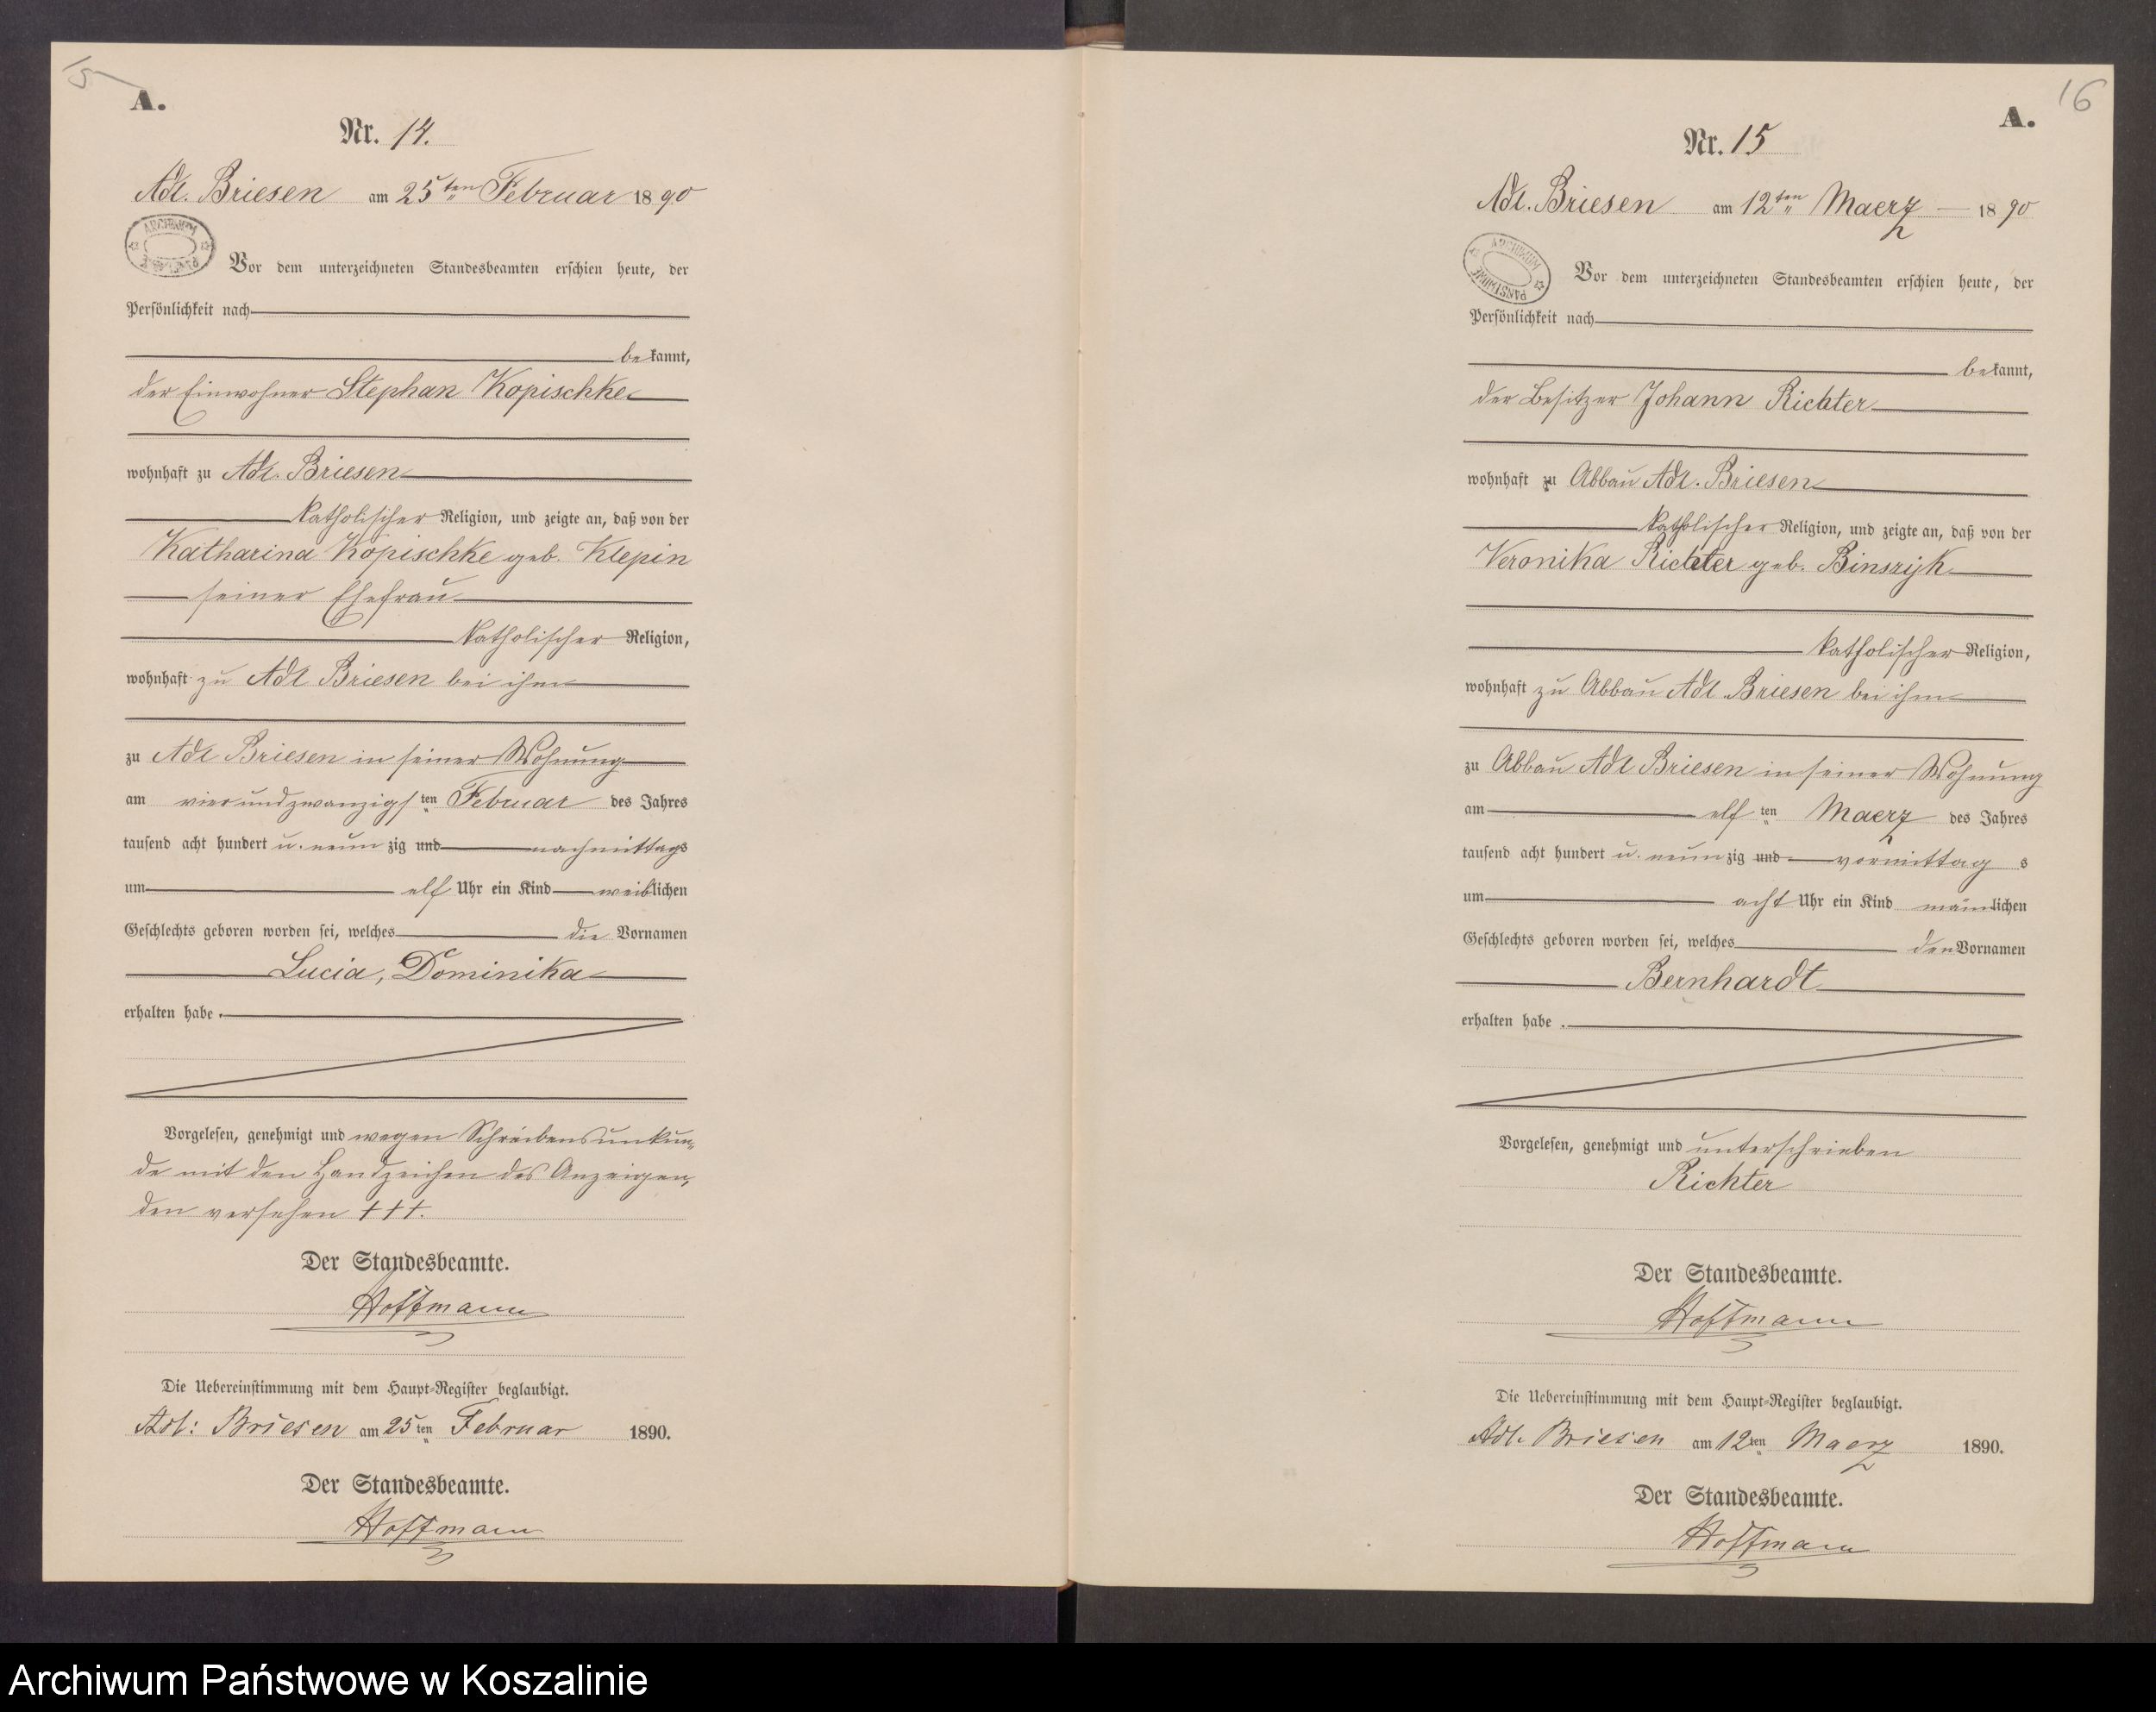 15
A.
Nr. 14.
Adl. Briesen am 25ten Februar 1890
ARCHIWUM
Vor dem unterzeichneten Standesbeamten erschien heute, der
Persönlichkeit nach
bekannt,
der Einwohner Stephan Kopischke
wohnhaft zu Adl. Briesen
katholischer Religion, und zeigte an, daß von der
Katharina Kopischke geb. Klepin
seiner Ehefrau
katholischer Religion,
wohnhaft zu Adl Briesen bei ihm
zu Adl Briesen in seiner Wohnung
am vierundzwanzigsten Februar des Jahres
tausend acht hundert u. neunzig und nachmittags
um elf Uhr ein Kind weiblichen
Geschlechts geboren worden sei, welches die Vornamen
Lucia, Dominika
erhalten habe.
Vorgelesen, genehmigt und wegen Schreibensunkun-
de mit den Handzeichen des Anzeigen-
den versehen +++.
Der Standesbeamte.
Hoffmann
Die Uebereinstimmung mit dem Haupt-Register beglaubigt.
Adl: Briesen am 25ten Februar 1890.
Der Standesbeamte.
Hoffmann
16
A.
Nr. 15
Adl. Briesen am 12ten Maerz 1890
ARCHIWUM PAŃSTWOWE
Vor dem unterzeichneten Standesbeamten erschien heute, der
Persönlichkeit nach
bekannt,
der Besitzer Johann Richter
wohnhaft zu Abbau Adl. Briesen
katholischer Religion, und zeigte an, daß von der
Veronika Richter geb. Binszyk
katholischer Religion,
wohnhaft zu Abbau Adl Briesen bei ihm
zu Abbau Adl Briesen in seiner Wohnung
am elften Maerz des Jahres
tausend acht hundert u. neunzig und vormittags
um acht Uhr ein Kind männlichen
Geschlechts geboren worden sei, welches den Vornamen
Bernhardt
erhalten habe.
Vorgelesen, genehmigt und unterschrieben
Richter
Der Standesbeamte.
Hoffmann
Die Uebereinstimmung mit dem Haupt-Register beglaubigt.
Adl. Briesen am 12ten Maerz 1890.
Der Standesbeamte.
Hoffmann
Archiwum Państwowe w Koszalinie